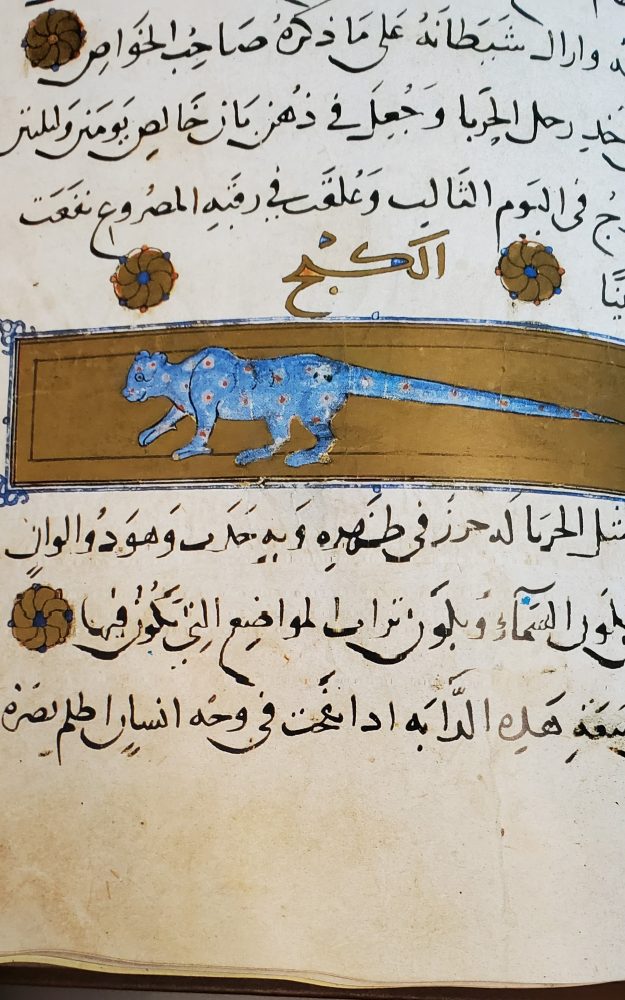 وازال شيطانه على ما ذكره صاحب الخواص
رجل الحربا وجعل في دهن بان خالص يومين وليلتين
في اليوم الثالث وعلقت في رقبه المصروع نفعت
الكبح
مثل الحربا له حرز في ظهره وبه وهو ذو الوان
يتلون السماء وبلون تراب المواضيع التي تكون فيها
هذه الدابه اذا نفخت في وجه انسان اظلم بصره